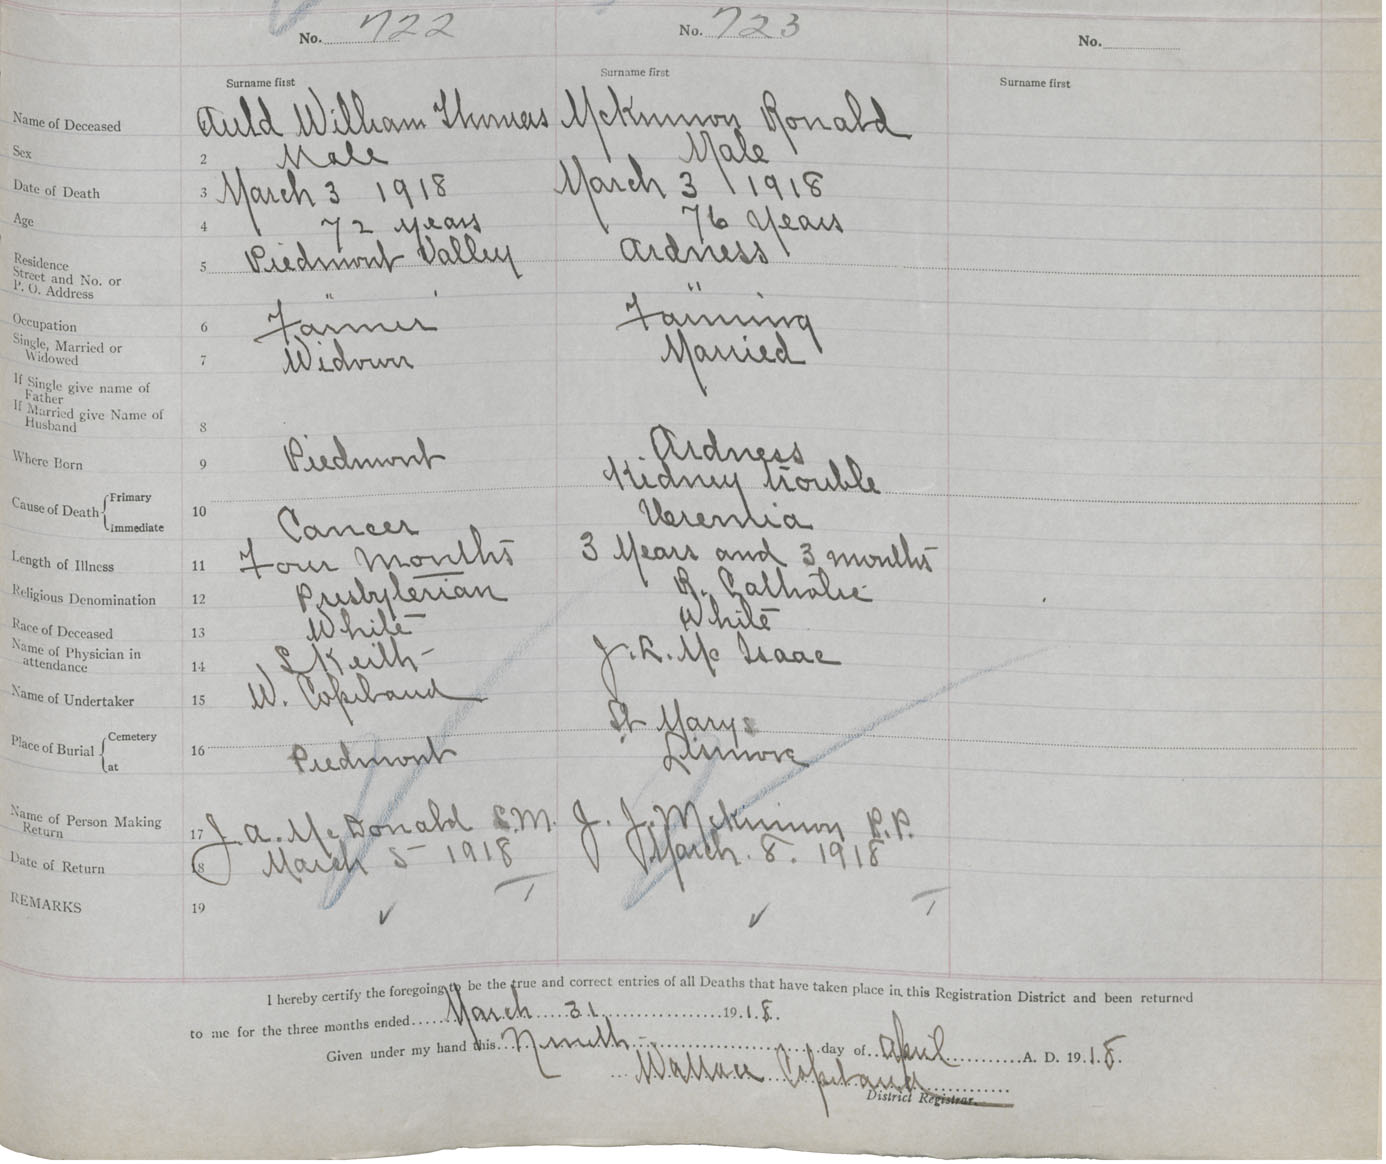 No. 722 No. 723 No.
Surname first Surname first Surname first
Name of Deceased Auld William Thomas McKinnon Ronald
Sex 2 Male Male
Date of Death 3 March 3 1918 March 3 1918
Age 4 72 years 76 Years
Residence
Street and No. or 5 Piedmont Valley Ardness
P. O. Address " "
Occupation 6 Farmer Farming
Single, Married or
Widowed 7 Widower Married
If Single give name of
Father
If Married give Name of
Husband 8
Where Born 9 Piedmont Ardness
Cause of Death Primary Kidney trouble
10
Immediate Cancer Ueremia
Length of Illness 11 Four Months 3 Years and 3 months
Religious Denomination 12 Presbyterian R. Catholic
Race of Deceased 13 White White
Name of Physician in
attendance 14 S Keith J. L. Mc Isaac
Name of Undertaker 15 W. Copeland
Place of Burial Cemetery St Marys
16
at Piedmont Lismore
Name of Person Making
Return 17 J. A. McDonald S.M. J. J. McKinnon P.P.
Date of Return 18 March 5 1918 March. 8. 1918
REMARKS 19
I hereby certify the foregoing to be the true and correct entries of all Deaths that have taken place in this Registration District and been returned
to me for the three months ended March 31 1918.
Given under my hand this Nineth day of April A. D. 1918.
Wallace Copeland
District Registrar.